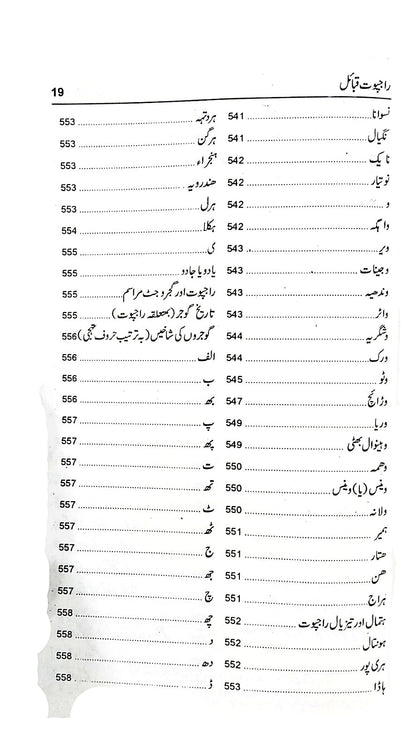 راجپوت قبائل
19
نسوانا 541
نگیال 541
نایک 542
نوتیار 542
و 542
واہگہ 542
ویر 543
وجینات 543
وندھیہ 543
واثر 543
وشگریہ 544
ورک 544
وٹو 545
وڑائچ 547
وریا 549
وہینوال بھٹی 549
وھمہ 550
وینس (یا) وینس 550
ولانہ 550
ہمیر 551
ھتار 551
ھن 551
ہراج 551
ہتمال اور تیزیال راجپوت 552
ہونتال 552
ہری پور 552
ہاڈا 553
ہرتمہ 553
ہرگن 553
ہنجراء 553
ھندرویہ 553
ہرل 553
ہکلا 554
ی 555
یادو یا جادو 555
راجپوت اور گجر و جٹ مراسم 555
تاریخ گوجر (بمتعلقہ راجپوت) 555
گوجروں کی شاخیں (بہ ترتیب حروف تہجی) 556
الف 556
ب 556
بھ 556
پ 557
پھ 557
ت 557
تھ 557
ٹ 557
ٹھ 557
ج 557
جھ 557
چ 557
چھ 558
د 558
دھ 558
ڈ 558